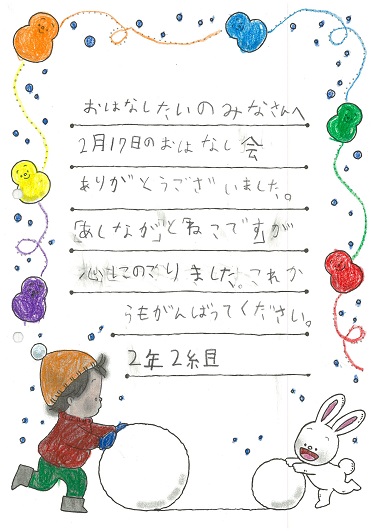 おはなしたいのみなさんへ
2月17日のおはなし会
ありがとうございました。
「あしなが」と「ねこです」が
心にのこりました。これか
らもがんばってください。
2年2組